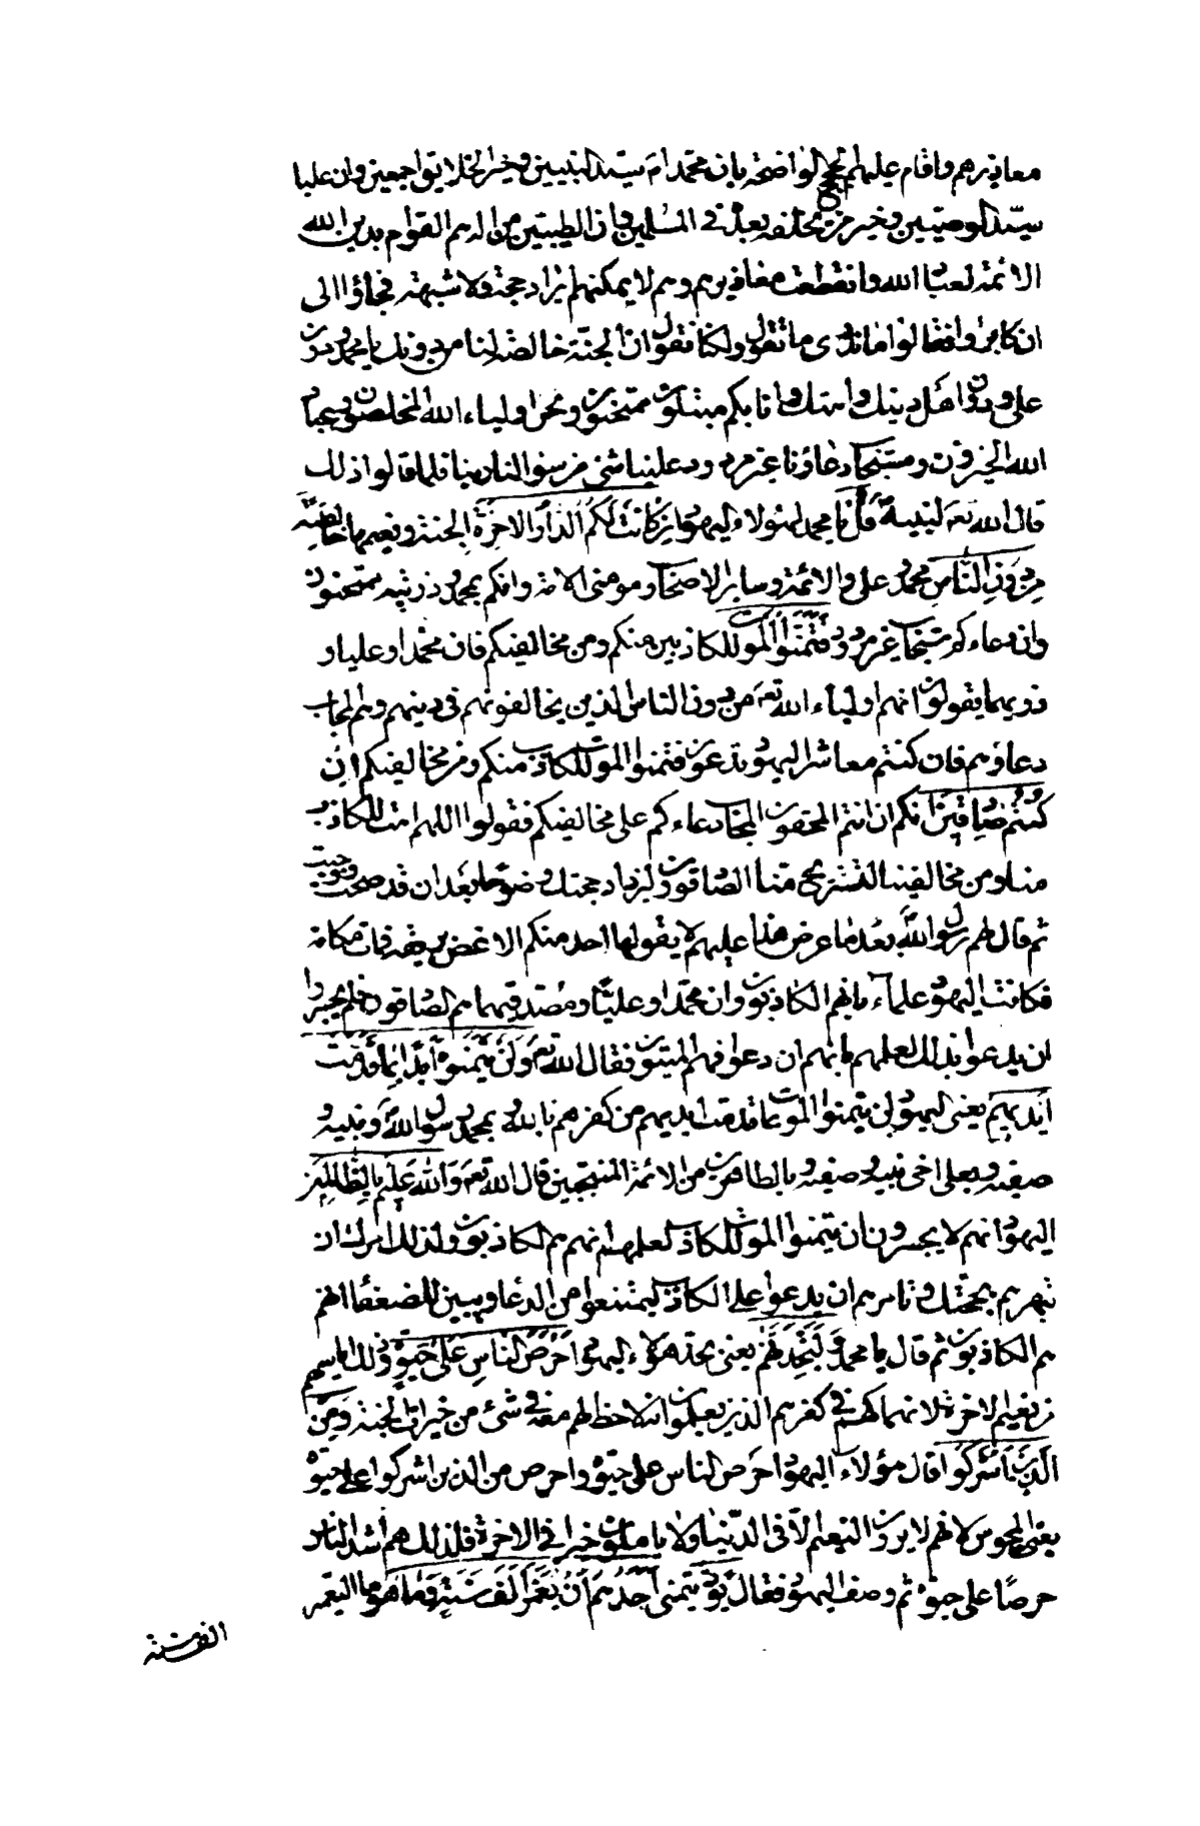 معاذيرهم واقام عليهم الحجج الواضحة بان محمدا ص سيد النبيين وخير الخلايق اجمعين وان عليا
سيد الوصيين وخير من يخلفه بعده فى المسلمين وان الطيبين من اله هم القوام بدين الله
الائمة لعباد الله وانقطعت معاذيرهم وهم لا يمكنهم ايراد حجة ولا شبهة فجاؤا الى
ان كابروا فقالوا ما ندرى ما تقول ولكنا نقول ان الجنة خالصة لنا من دونك يا محمد ودون
على ودون اهل دينك وامتك وانا بكم مبتلون ممتحنون ونحن اولياء الله المخلصون وعباد
الله الخيرون ومستجاب دعاؤنا غير مردود علينا شئ من سؤالنا ربنا فلما قالوا ذلك
قال الله تعه لنبيه قُلْ يا محمد لهؤلاء اليهود اِنْ كانَتْ لَكُمُ الدّارُ الاخِرَةُ الجنة ونعيمها خالِصَةً
مِنْ دُونِ النّاسِ محمد وعلى والائمة وساير الاصحاب ومومنى الامة وانكم بمحمد وذريته ممتحنون
وان دعاءكم مستجاب غير مردود فَتَمَنَّوُا الْمَوْتَ للكاذبين منكم ومن مخالفيكم فان محمدا وعليا و
ذويهما يقولون انهم اولياء الله تعه من دون الناس الذين يخالفونهم فى دينهم وهم المجاب
دعاؤهم فان كنتم معاشر اليهود تدعون فتمنوا الموت للكاذب منكم ومن مخالفيكم اِنْ
كُنْتُمْ صادِقينَ انكم انتم المحقون المجاب دعاءكم على مخالفيكم فقولوا اللهم امت الكاذب
منا ومن مخالفينا لتستريح منا الصادقون وليزداد حجتك وضوحا بعد ان قد صحت ووجبت
ثم قال لهم رسول الله بعد ما عرض هذا عليهم لا يقولها احد منكم الا غص بريقه فمات مكانه
فكانت اليهود علماء بانهم الكاذبون وان محمدا وعليا ومصدقيهما هم الصادقون فلم يجسروا
ان يدعوا بذلك لعلمهم بانهم ان دعوا فهم الميتون فقال الله تعه وَلَنْ يَتَمَنَّوْهُ اَبَدًا بِما قَدَّمَتْ
اَيْديهِمْ يعنى اليهود لن يتمنوا الموت بما قدمت ايديهم من كفرهم بالله وبمحمد رسول الله ونبيه و
صفيه وبعلى اخى نبيه وصفيه وبالطاهرين من الائمة المنتجبين قال الله تعه وَاللهُ عَليمٌ بِالظّالِمينَ
اليهود انهم لا يجسرون ان يتمنوا الموت للكاذب لعلمهم انهم هم الكاذبون ولذلك امرك ان
تبهرهم بحجتك وتامرهم ان يدعوا على الكاذب ليمتنعوا من الدعاء ويبين للضعفاء انهم
هم الكاذبون ثم قال يا محمد وَلَتَجِدَنَّهُمْ يعنى تجد هؤلاء اليهود اَحْرَصَ النّاسِ عَلى حَيوةٍ وذلك لياسهم
من نعيم الاخرة لانهماكهم فى كفرهم الذين يعلمون انه لا حظ لهم معه فى شئ من خيرات الجنة وَمِنَ
الَّذينَ اَشْرَكُوا قال هؤلاء اليهود احرص الناس على حيوة واحرص من الذين اشركوا على حيوة
يعنى المجوس لانهم لا يرون النعيم الا فى الدنيا ولا ياملون خيرا فى الاخرة فلذلك هم اشد الناس
حرصا على حيوة ثم وصف اليهود فقال يَوَدُّ يتمنى اَحَدُهُمْ اَنْ يُعَمَّرَ اَلْفَ سَنَةٍ وَما هُوَ ما التعمير
الف سنة